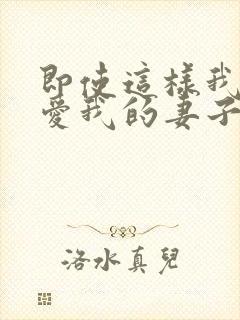 即使這樣我
愛我的妻子
洛水真兒